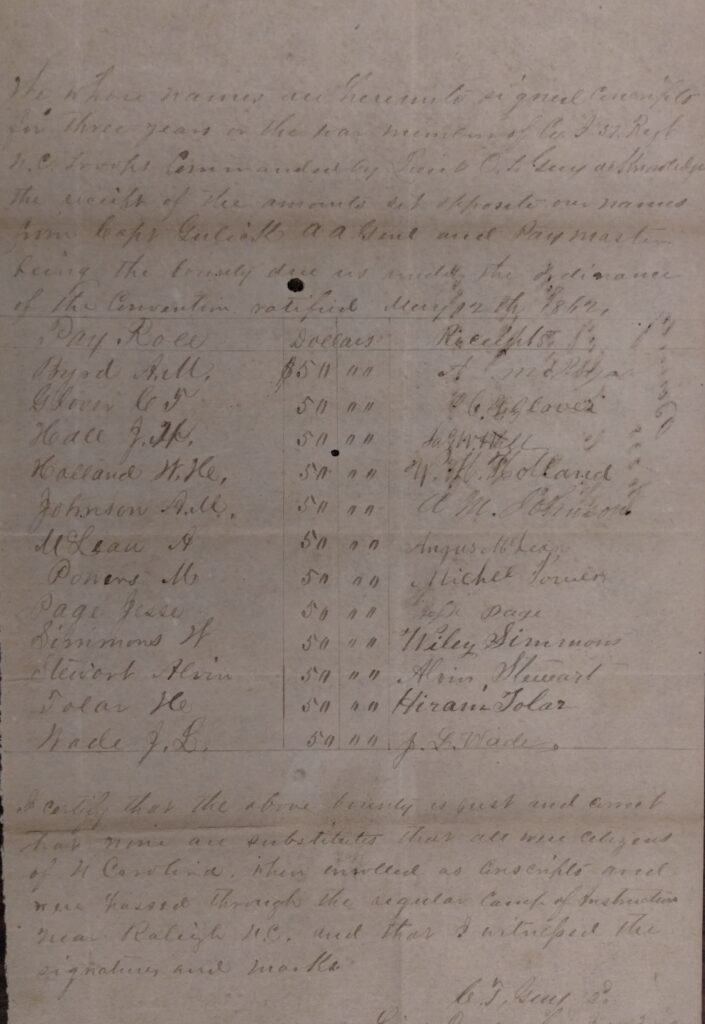 We whose names are hereunto signed Conscripts
for three years or the war members of Co. I 51 Regt
N.C. Troops Commanded by Lieut Guy acknowledge
the receipt of the amounts set opposite our names
from Capt Gulick A A Genl and Paymaster
being the bounty due us under the Ordinance
of the Convention ratified May 12th 1862.
Pay Role Dollars Receipts
Byrd A.M. $50 "" A
Glover C T 50 "" C. T. Glover
Hall J. H. 50 ""
Holland W. He. 50 "" W. H. Holland
Johnson A.M. 50 "" A M. Johnson
McLean A 50 "" Angus McLean
Powers M 50 "" Michel Power
Page Jesse 50 "" Page
Simmons W 50 "" Wiley Simmons
Stewort Alvin 50 "" Alvin Stewart
Tolar He 50 "" Hiram Tolar
Wade J. L. 50 "" J. L. Wade.
I certify that the above bounty is just and correct
that none are substitutes that all were citizens
of N Carolina. when enrolled as conscripts and
were passed through the regular Camp of Instruction
near Raleigh N.C. and that I witnessed the
signatures and marks
Guy